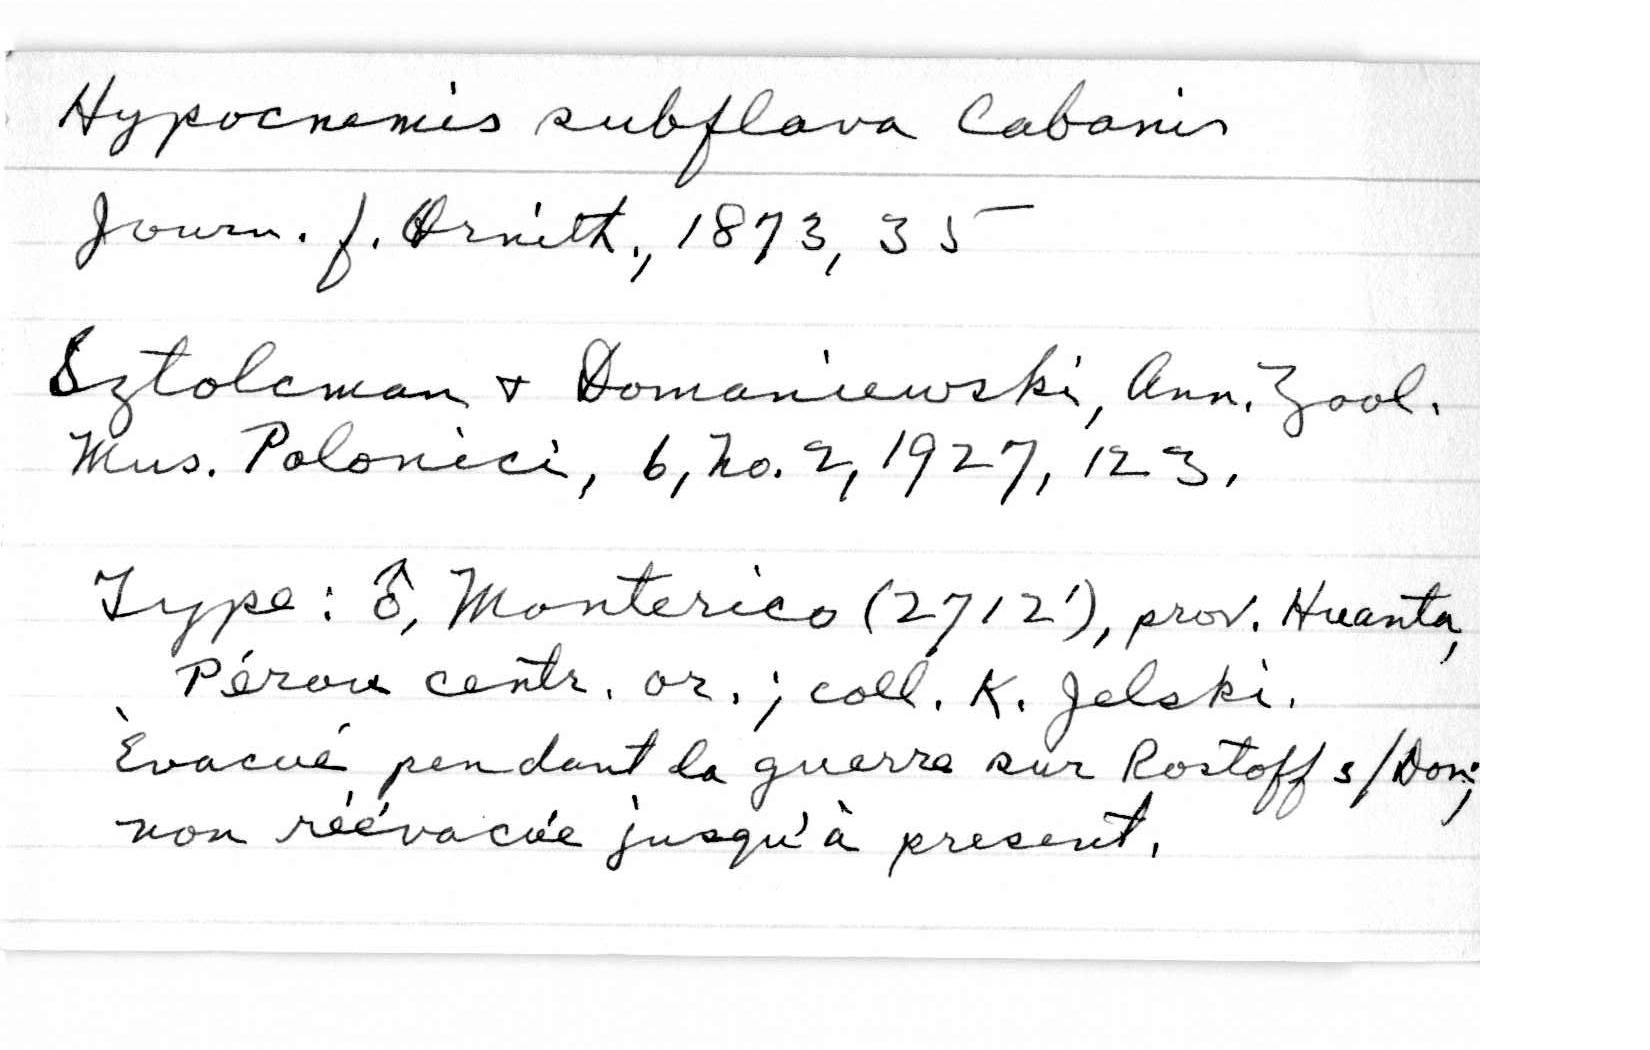 Hypocnemis subflava Cabanis
Journ. f. Ornith., 1873, 35
Sztolcman & Domaniewski, Ann. Zool.
Mus. Polonici, 6, No. 2, 1927, 123.
Type: ♂, Monterico (2712'), prov. Huanta,
Pérou centr. or.; coll. K. Jelski.
Èvacué pendant la guerre sur Rostoff s/Don;
non réévacúe jusqu'à present.